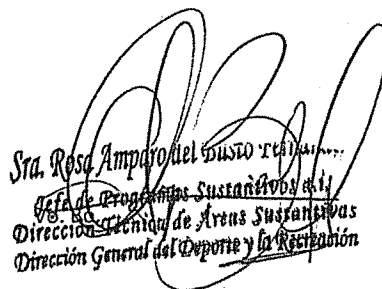 Sra. Rosa Amparo del Busto
Jefe de Programas Sustantivos a.i.
Vo. Bo.
Dirección Técnica de Áreas Sustantivas
Dirección General del Deporte y la Recreación